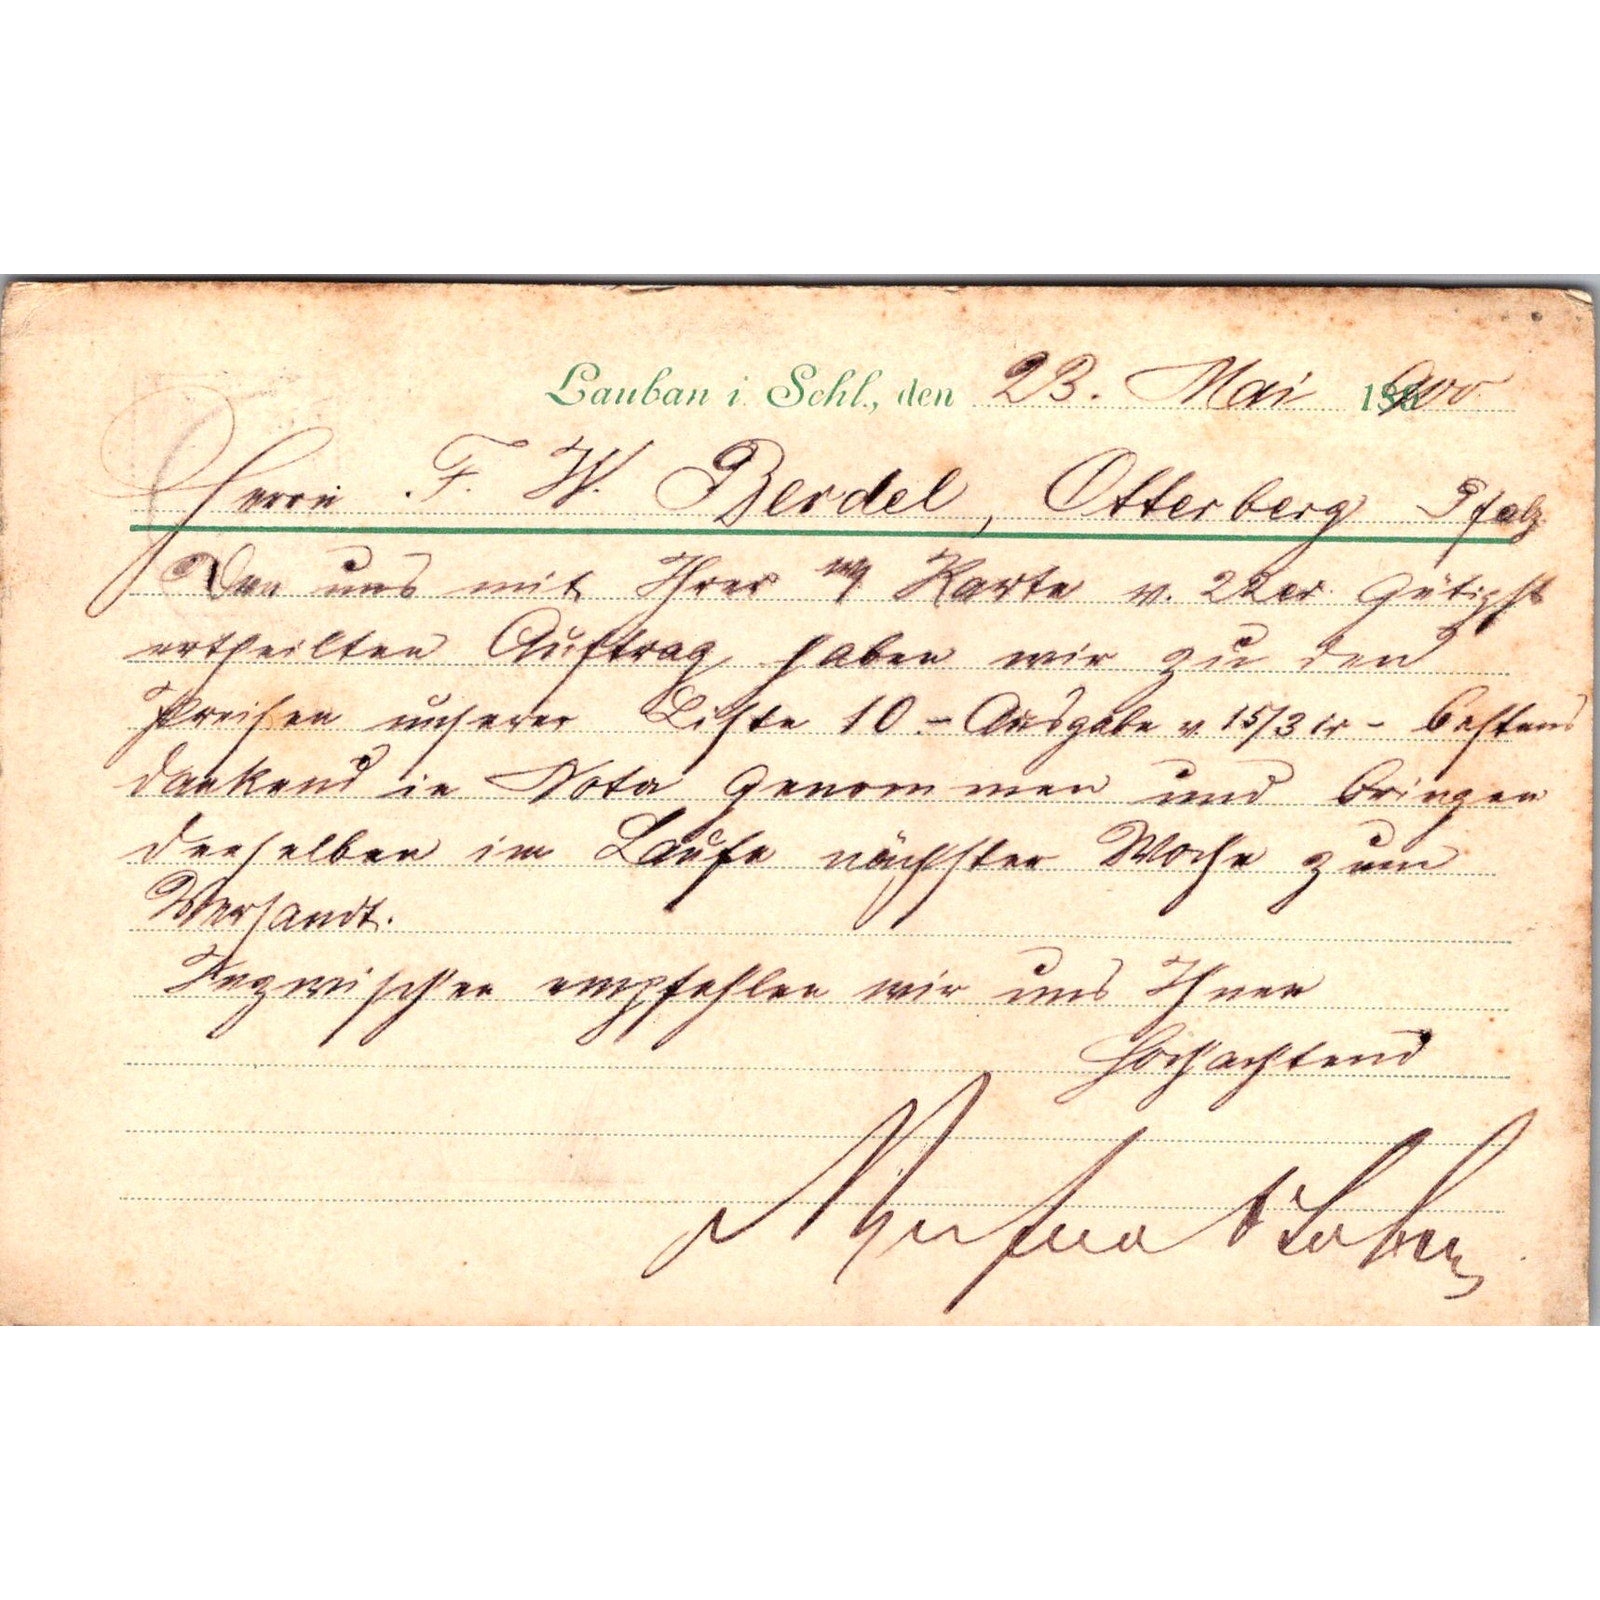 Lauban i. Schl., den 23. Mai 1900
Herrn F. W. Berdel, Otterberg Pfalz
Den uns mit Ihrer Karte v. 22 cr. gütigst
ertheilten Auftrag haben wir zu den
Preisen unserer Liste 10 - Ausgabe v. 15/3 cr - bestens
dankend in Nota genommen und bringen
denselben im Laufe nächster Woche zum
Versandt.
Inzwischen empfehlen wir uns Ihnen
Hochachtend